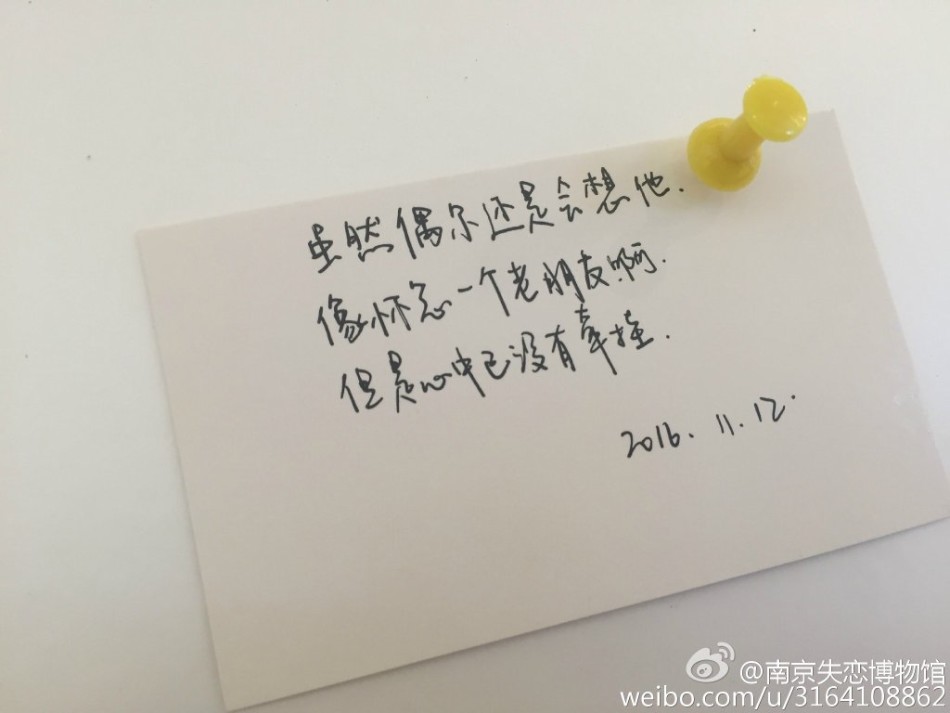 虽然偶尔还是会想他.
像怀念一个老朋友啊.
但是心中已没有牵挂.
2016.11.12.
@南京失恋博物馆
weibo.com/u/3164108862